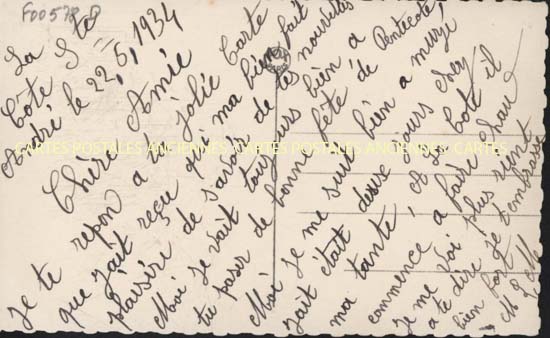 F00578 B
La Côte S te
André le 22,5,1934
Chère Amie
Je te repon a ta jolie Carte
que j'ait reçu qui ma bien fait
plaisire de savoir de tes nouvelles
Moi Je vait toujours bien a
tu passer de bonne fête de Pentecote,
Moi Je me suis bien a muzé
j'ait était deux jours chez
ma tante, A La Cote il
commence a faire chaud
Je me voi plus rient
a te dire Je t'embrasse
bien fort
CARTES POSTALES ANCIENNES CARTES POSTALES ANCIENNES CARTES